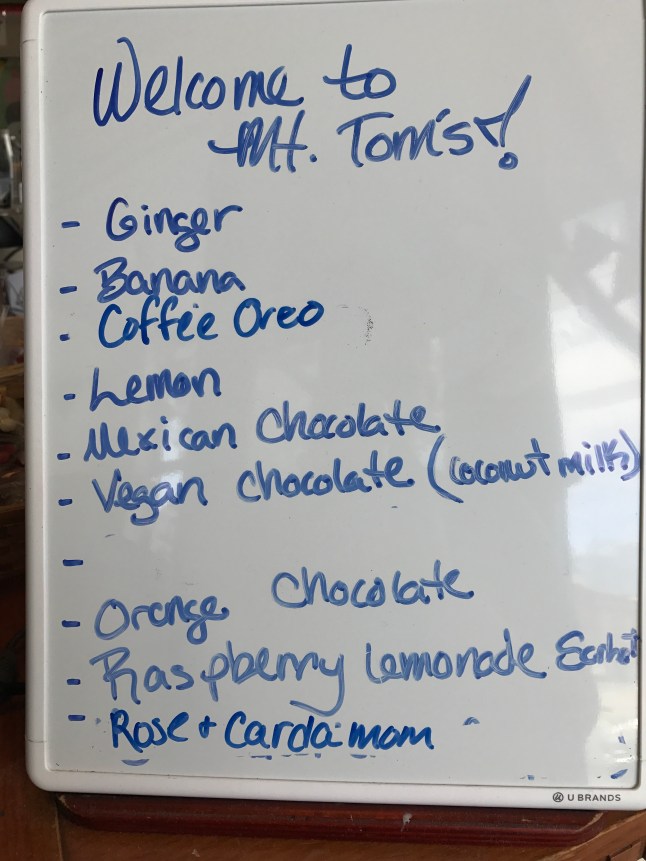 Welcome to
Mt. Tom's!
- Ginger
- Banana
- Coffee Oreo
- Lemon
- Mexican Chocolate
- Vegan chocolate (coconut milk)
-
- Orange Chocolate
- Raspberry lemonade Sorbet
- Rose + Cardamom
U BRANDS